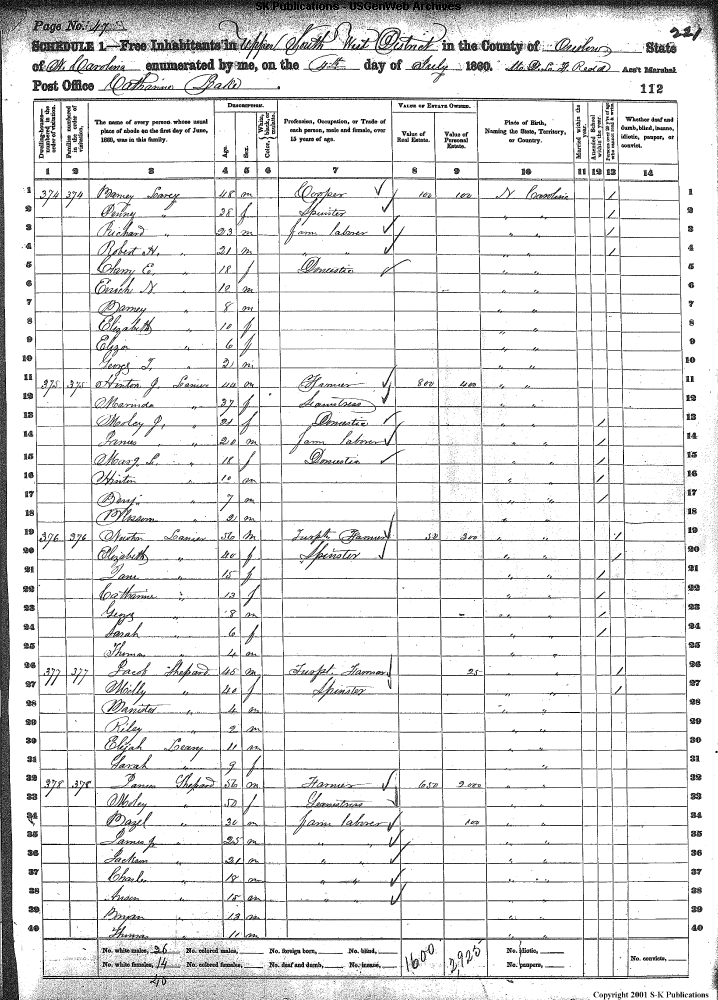 SK Publications - USGenWeb Archives
Page No. 47
221
SCHEDULE 1.—Free Inhabitants in Upper South West District in the County of Onslow State
of N. Carolina enumerated by me, on the 4th day of July 1860. Ass't Marshal
Post Office Catharine Lake
112
Dwelling-houses—numbered in the order of visitation.
Families numbered in the order of visitation.
The name of every person whose usual place of abode on the first day of June, 1860, was in this family.
DESCRIPTION.
Age.
Sex.
Color, White, black, or mulatto.
Profession, Occupation, or Trade of each person, male and female, over 15 years of age.
VALUE OF ESTATE OWNED.
Value of Real Estate.
Value of Personal Estate.
Place of Birth, Naming the State, Territory, or Country.
Married within the year.
Attended School within the year.
Whether deaf and dumb, blind, insane, idiotic, pauper, or convict.
1 2 3 4 5 6 7 8 9 10 11 12 13 14
1 374 374 Barney 48 m Cooper 100 100 N Carolina / 1
2 Penny " 28 f Spinster " " / 2
3 Richard " 23 m farm laborer " " / 3
4 Robert H. " 21 m " " " " / 4
5 E. " 18 f Domestic " " 5
6 N " 10 m " " 6
7 Barney " 8 m " " 7
8 Elizabeth " 10 f " " 8
9 Eliza " 6 f " " 9
10 George T. " 2 m " " 10
11 375 375 Hinton J. Lanier 44 m Farmer 800 400 " " 11
12 " 37 f Seamstress " " 12
13 " 21 f Domestic " " / 13
14 James " 20 m farm laborer " " / 14
15 " 18 f Domestic " " / 15
16 Hinton " 10 m " " / 16
17 Benj. " 7 m " " / 17
18 Blossom " 2 m " " 18
19 376 376 Lanier 56 m Turpt. Farmer 50 300 " " / 19
20 Elizabeth " 40 f Spinster " " / 20
21 Jane " 15 f " " 21
22 Catharine " 13 f " " / 22
23 George " 8 m " " / 23
24 Sarah " 6 f " " / 24
25 Thomas " 4 m " " 25
26 377 377 Jacob Shepard 45 m Turpt. Farmer 25 " " / 26
27 Milly " 40 f Spinster " " / 27
28 " 4 m " " 28
29 Riley " 2 m " " 29
30 Elijah 11 m " " 30
31 Sarah " 9 f " 31
32 378 378 James Shepard 56 m Farmer 650 2000 " " 32
33 " 50 f Seamstress " " 33
34 Bazel " 30 m farm laborer 100 " " 34
35 James " 25 m " " " " 35
36 Jackson " 21 m " " 36
37 Charles " 18 m " " " " 37
38 " 15 m " " 38
39 Bryan " 13 m " " 39
40 Thomas " 11 m " " 40
No. white males, 26 No. colored males, No. foreign born, No. blind, 1600 2,925 No. idiotic,
No. white females, 14 No. colored females, No. deaf and dumb, No. insane, No. paupers, No. convicts,
40
Copyright 2001 S-K Publications